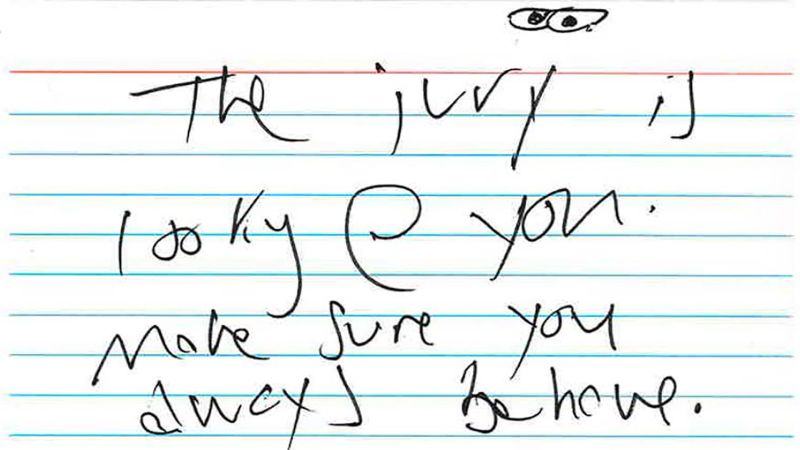 The jury is
looking @ you.
Make sure you
always behave.